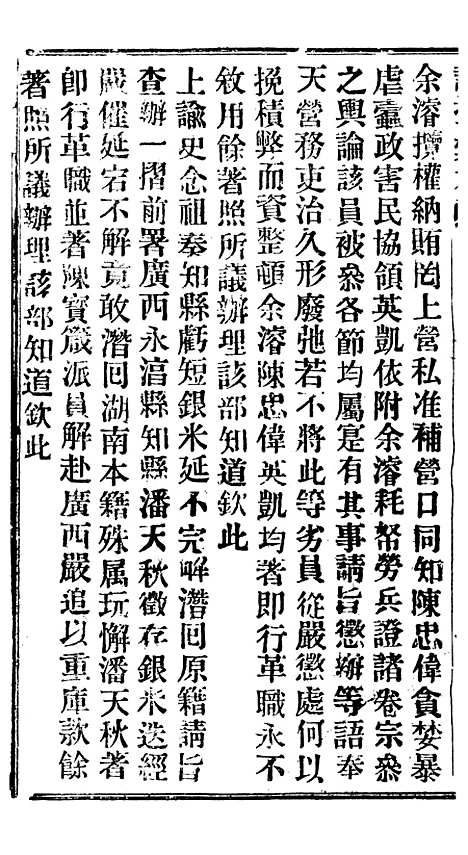 余濬攬權納賄罔上營私准補營口同知陳忠偉貪婪暴
虐蠹政害民協領英凱依附余濬耗帑勞兵證諸卷宗叅
之輿論該員被叅各節均屬寔有其事請旨懲辦等語奉
天營務吏治久形廢弛若不將此等劣員從嚴懲處何以
挽積弊而資整頓余濬陳忠偉英凱均著即行革職永不
敘用餘著照所議辦理該部知道欽此
上諭史念祖奏知縣虧短銀米延不完解潛回原籍請旨
查辦一摺前署廣西永淳縣知縣潘天秋徵存銀米迭經
嚴催延宕不解竟敢潛回湖南本籍殊属玩懈潘天秋著
卽行革職並著陳寶箴派員解赴廣西嚴追以重庫款餘
著照所議辦理該部知道欽此